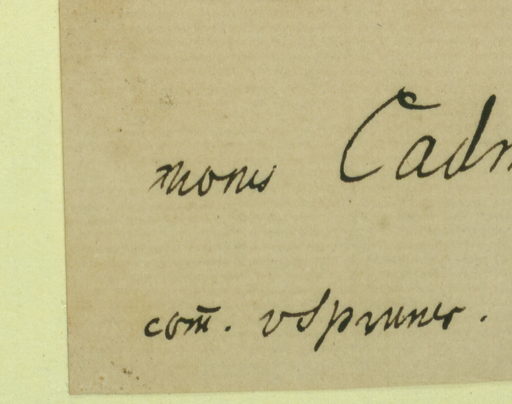 mons Cadm
com̄. v Spruner.